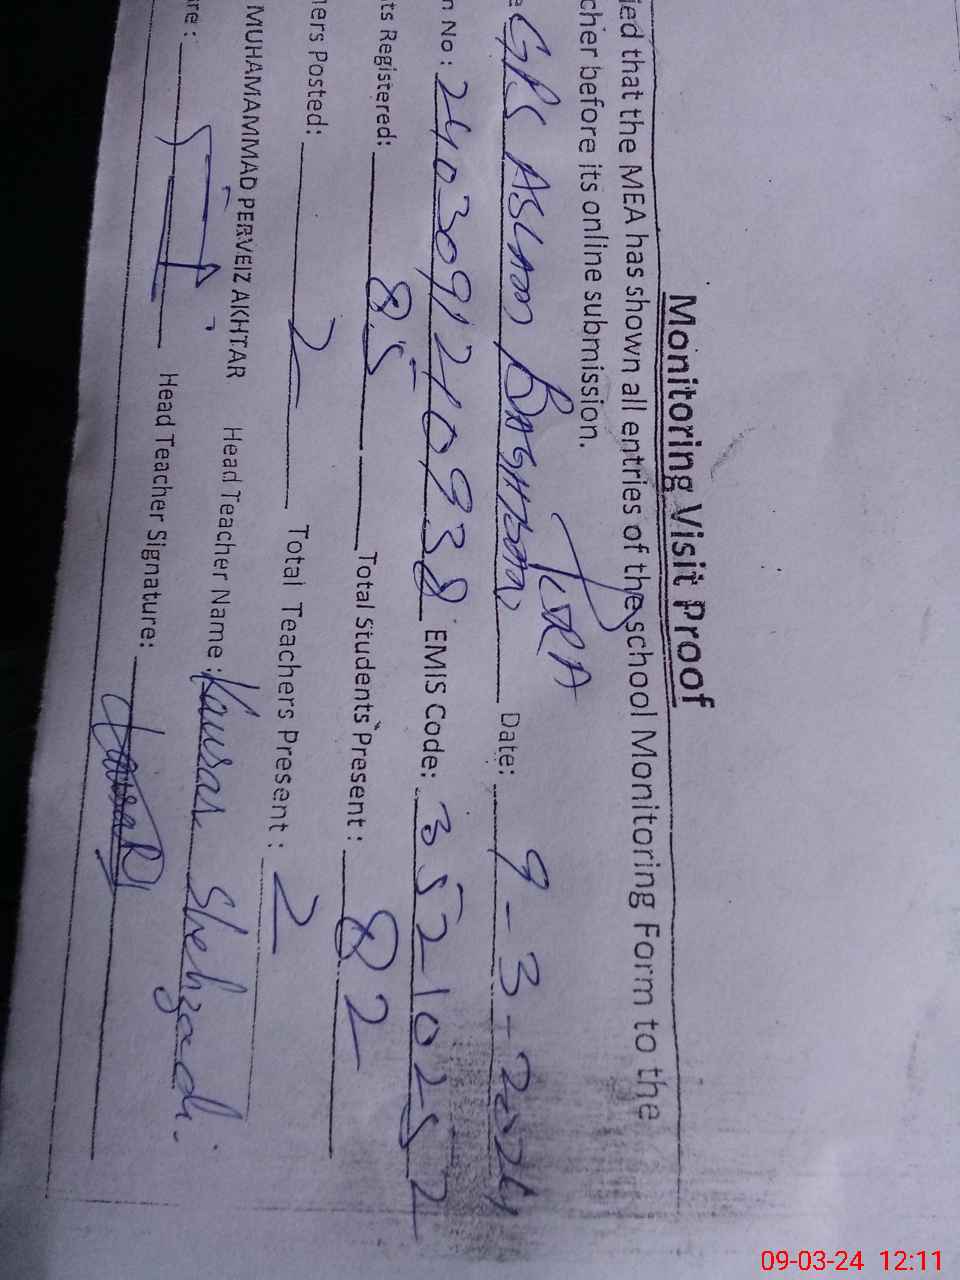 Monitoring Visit Proof
ied that the MEA has shown all entries of the school Monitoring Form to the
cher before its online submission.
GPS ASLAM BAGHBAN PURA Date: 9-3-2024
n No: 2403091210938 EMIS Code: 35210252
ts Registered: 85 Total Students Present: 82
hers Posted: 2 Total Teachers Present: 2
MUHAMAMMAD PERVEIZ AKHTAR Head Teacher Name: Kausar Shehzadi.
re: Head Teacher Signature: KausaR
09-03-24 12:11